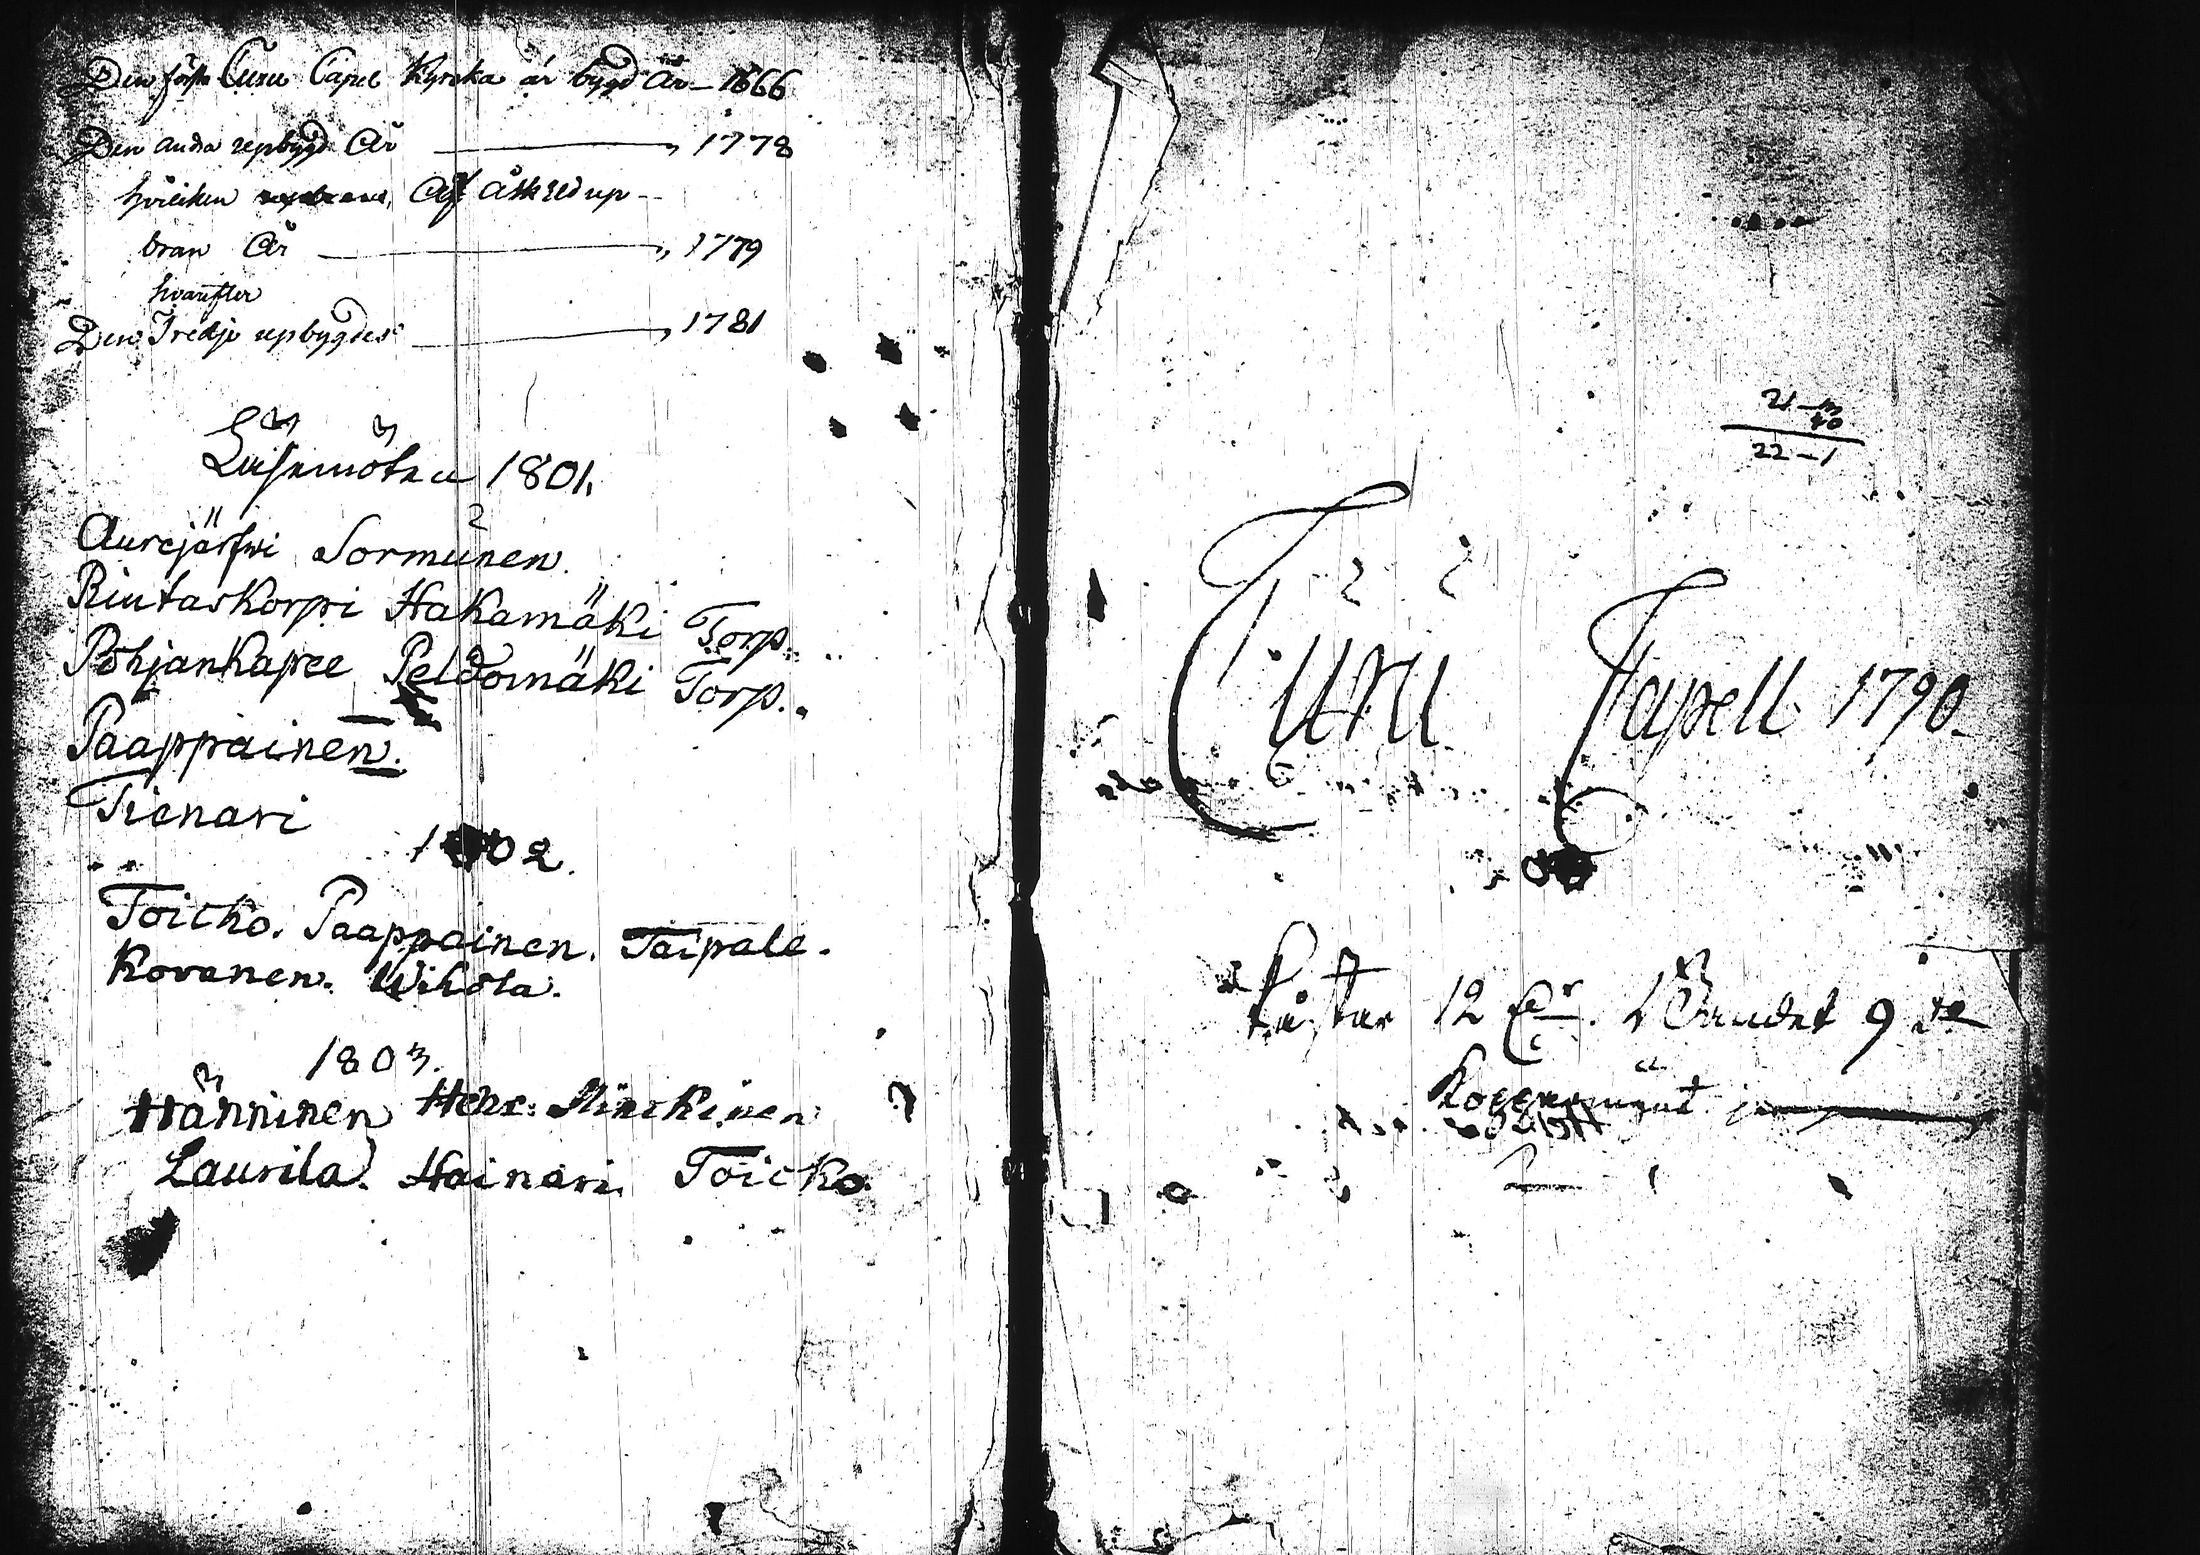 Den förste Curu Capel Kyrcka är bygd År 1666
Den andra upbygd År 1778
hvilcken Af Åskeld up-
bran År 1779
hvarefter
Den Tredje upbygdes 1781
Läsemöten 1801.
Aurejärfwi Sormunen.
Riutaskorpi Hakamäki Torp.
Pohjankapee Peldomäki Torp.
Paappainen.
Tienari
1802.
Toicko. Paappainen. Taipale.
Kovanen. Wihola.
1803.
Hänninen Hehr: Minckinen
Laurila. Hainari Toicko.
21 - 
40
22 - 1
Curu Capell 1790.
kåstar 12 Bandet 9